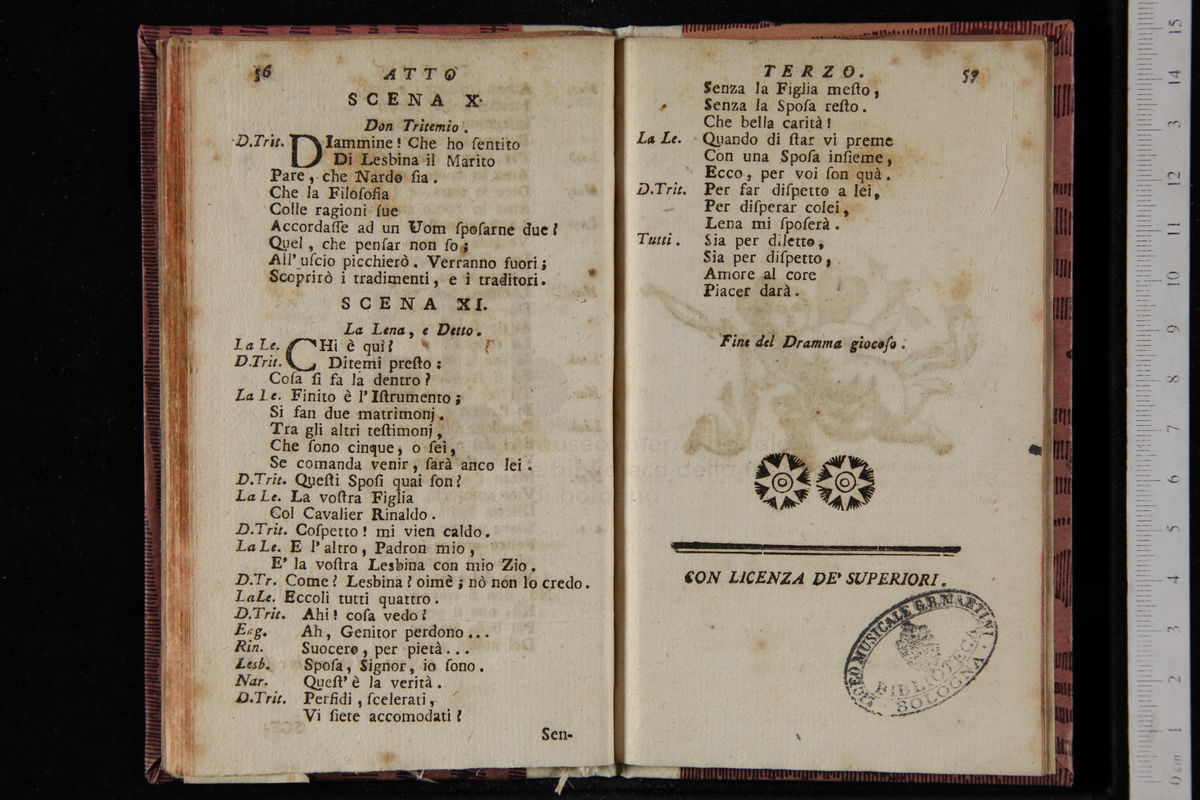 56 ATTO
SCENA X.
Don Tritemio.
D.Trit. DIammine! Che ho ſentito
Di Lesbina il Marito
Pare, che Nardo ſia.
Che la Filoſofia
Colle ragioni ſue
Accordaſſe ad un Uom ſpoſarne due?
Quel, che penſar non ſo;
All'uſcio picchierò. Verranno fuori;
Scoprirò i tradimenti, e i traditori.
SCENA XI.
La Lena, e Detto.
La Le. CHi è quì?
D.Trit. Ditemi preſto:
Coſa ſi fa là dentro?
La Le. Finito è l'Iſtrumento;
Si fan due matrimonj.
Tra gli altri teſtimonj,
Che ſono cinque, o ſei,
Se comanda venir, ſarà anco lei.
D.Trit. Queſti Spoſi quai ſon?
La Le. La voſtra Figlia
Col Cavalier Rinaldo.
D.Trit. Coſpetto! mi vien caldo.
La Le. E l'altro, Padron mio,
E' la voſtra Lesbina con mio Zio.
D.Tr. Come? Lesbina? oimè; nò non lo credo.
LaLe. Eccoli tutti quattro.
D.Trit. Ahi! coſa vedo?
Eug. Ah, Genitor perdono...
Rin. Suocero, per pietà...
Lesb. Spoſa, Signor, io ſono.
Nar. Queſt' è la verità.
D.Trit. Perfidi, ſcelerati,
Vi ſiete accomodati?
Sen-
TERZO. 57
Senza la Figlia meſto,
Senza la Spoſa reſto.
Che bella carità!
La Le. Quando di ſtar vi preme
Con una Spoſa inſieme,
Ecco, per voi ſon quà.
D.Trit. Per far diſpetto a lei,
Per diſperar colei,
Lena mi ſpoſerà.
Tutti. Sia per diletto,
Sia per diſpetto,
Amore al core
Piacer darà.
Fine del Dramma giocoſo.
CON LICENZA DE' SUPERIORI.
LICEO MUSICALE G.B. MARTINI
BIBLIOTECA
BOLOGNA
museo internazionale
e biblioteca della
di bologna
0 cm 1 2 3 4 5 6 7 8 9 10 11 12 13 14 15